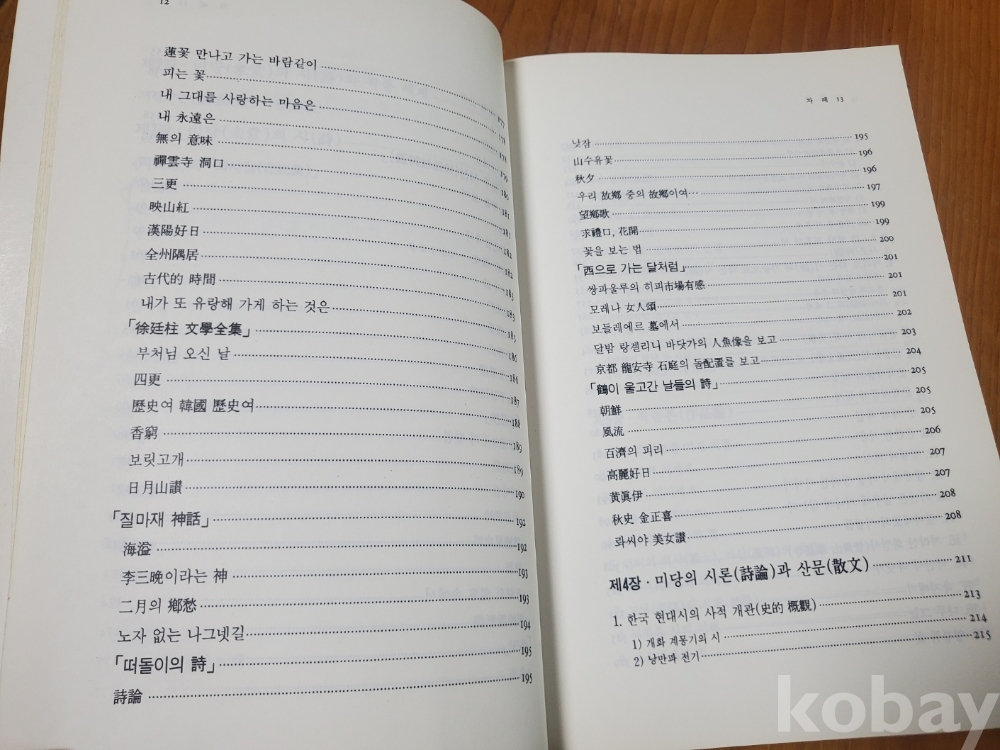 12
蓮꽃 만나고 가는 바람같이
피는 꽃
내 그대를 사랑하는 마음은
내 永遠은
無의 意味
禪雲寺 洞口
三更 180
映山紅 181
漢陽好日 181
全州隅居 182
古代的 時間 183
내가 또 유랑해 가게 하는 것은 183
「徐廷柱 文學全集」 185
부처님 오신 날 185
四更 187
歷史여 韓國 歷史여 188
香窮 189
보릿고개 189
日月山讚 190
「질마재 神話」 192
海溢 192
李三晩이라는 神 193
二月의 鄕愁 193
노자 없는 나그넷길 194
「떠돌이의 詩」 195
詩論 195
차례 13
낮잠 195
山수유꽃 196
秋夕 196
우리 故鄕 중의 故鄕이여… 197
望鄕歌 199
求禮口, 花開 199
꽃을 보는 법 200
「西으로 가는 달처럼」 201
쌍파울루의 히피市場有感 201
모레나 女人頌 201
보들레에르 墓에서 202
달밤 랑겔리니 바닷가의 人魚像을 보고 203
京都 龍安寺 石庭의 돌配置를 보고 204
「鶴이 울고간 날들의 詩」 205
朝鮮 205
風流 205
百濟의 피리 206
高麗好日 207
黃眞伊 207
秋史 金正喜 208
롸씨야 美女讚 208
제4장 · 미당의 시론(詩論)과 산문(散文) 211
1. 한국 현대시의 사적 개관(史的 槪觀) 213
1) 개화 계몽기의 시 214
2) 낭만파 전기 215
kobay